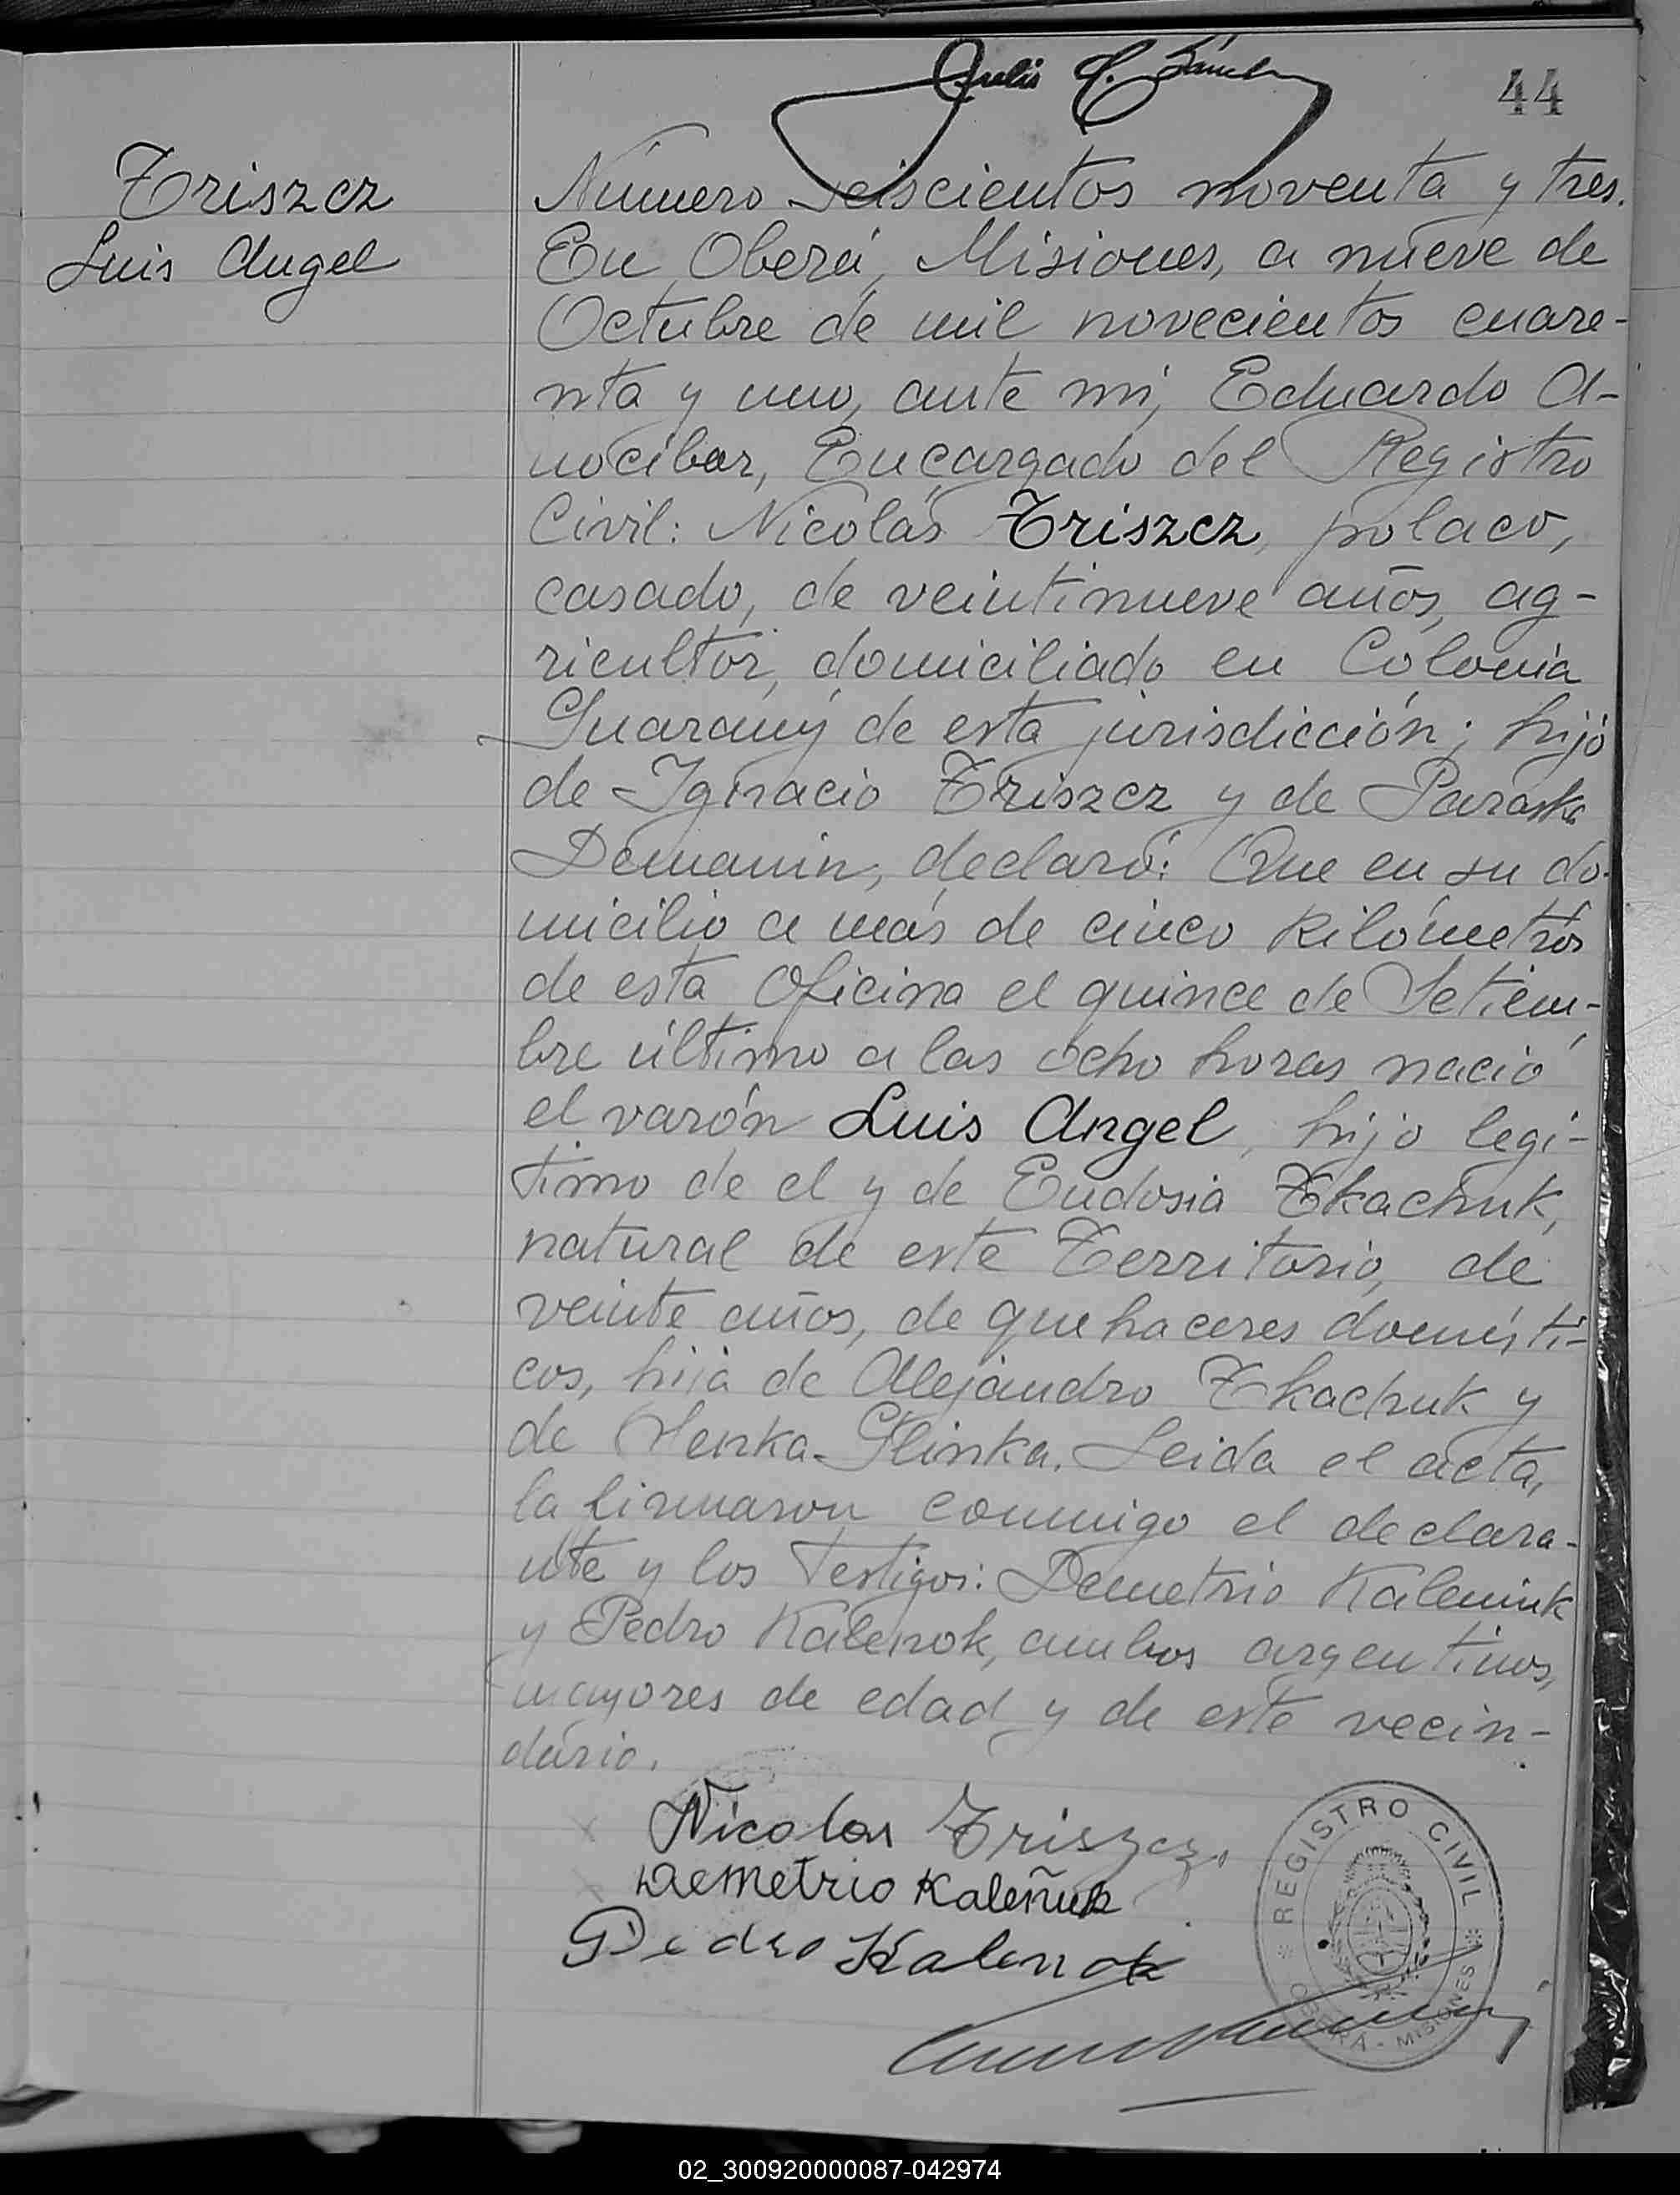 44
Triszcz
Luis Angel
Número seiscientos noventa y tres.
En Oberá, Misiones, a nueve de
Octubre de mil novecientos cuare-
nta y uno, ante mi, Eduardo A-
nocibar, Encargado del Registro
Civil: Nicolás Triszcz, polaco,
casado, de veintinueve años, ag-
ricultor, domiciliado en Colonia
Guarany de esta jurisdicción; hijo
de Ignacio Triszcz y de Paraska
Demanin, declaró: Que en su do-
micilio a más de cinco kilómetros
de esta Oficina el quince de Setiem-
bre último a las ocho horas nació
el varón Luis Angel, hijo legi-
timo de el y de Eudosia Tkachuk,
natural de este Territorio, de
veinte años, de quehaceres domésti-
cos, hija de Alejandro Tkachuk y
de Olenka Glinka. Leida el acta,
la firmaron conmigo el declara-
nte y los testigos: Demetrio Kaleniuk
y Pedro Kalenok, ambos argentinos,
mayores de edad y de este vecin-
dario.
Nicolas Triszcz.
Demetrio Kaleñuk
Pedro Kalenok
REGISTRO CIVIL
OBERÁ - MISIONES
02_300920000087-042974